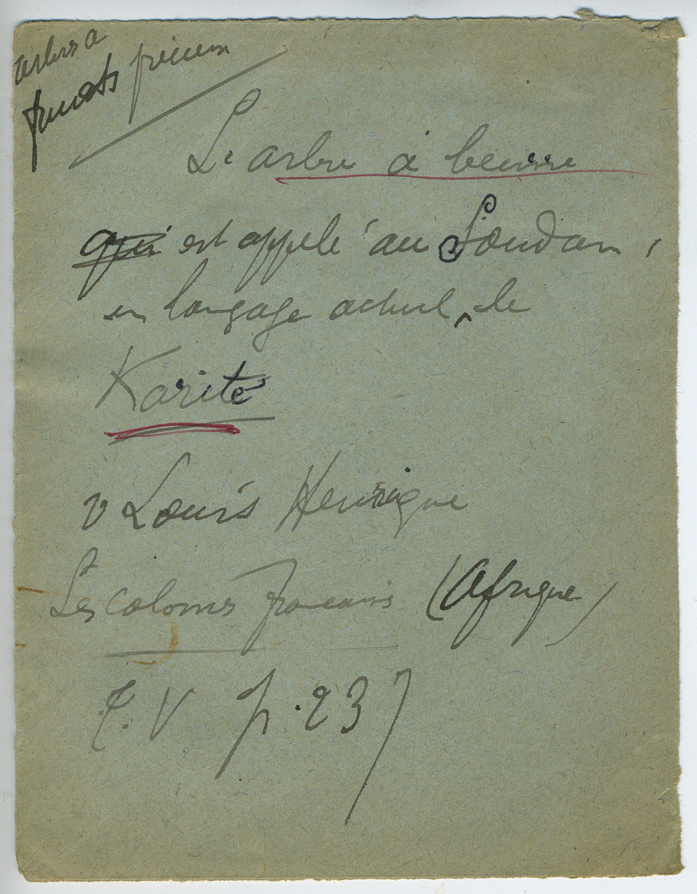 arbres a
fruits
L'arbre à beurre
qui est appelé au Soudan,
en langage actuel, le
Karité
v Louis Henrique
Les colonies françaises (Afrique)
T. V p. 237